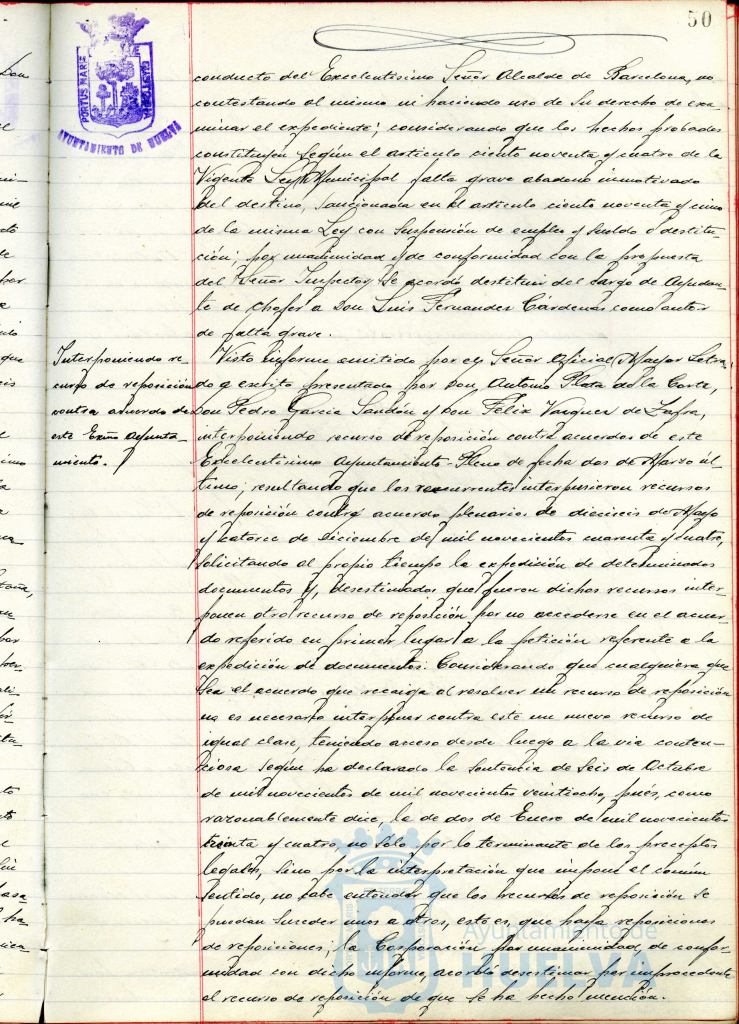 50
PORTUS MARIS
CUSTODIA
AYUNTAMIENTO DE HUELVA
conducto del Excelentísimo Señor Alcalde de Barcelona, no
contestando al mismo ni haciendo uso de su derecho de exa-
minar el expediente; considerando que los hechos probados
constituyen según el artículo ciento noventa y cuatro de la
Vigente Ley Municipal falta grave abadono inmotivado
del destino, sancionada en el artículo ciento noventa y cinco
de la misma Ley con suspensión de empleo y sueldo o destitu-
ción; por unanimidad y de conformidad con la propuesta
del Señor Inspector, se acordó destituir del cargo de Ayudan-
te de Chofer a Don Luis Fernandez Cárdenas como autor
de falta grave.
Interponiendo re-
curso de reposición
contra acuerdo de
este Exmo Ayunta-
miento.
Visto informe emitido por el Señor Oficial Mayor Letra-
do y escrito presentado por Don Antonio Plata de la Corte,
Don Pedro Garcia Sandón y Don Felix Vazquez de Zafra,
interponiendo recurso de reposición contra acuerdos de este
Excelentísimo Ayuntamiento-Pleno de fecha dos de Marzo úl-
timo; resultando que los recurrentes interpusieron recursos
de reposición contra acuerdo plenarios de dieciseis de Mayo
y catorce de diciembre de mil novecientos cuarenta y cuatro,
solicitando al propio tiempo la expedición de determinados
documentos y, desestimados que fueron dichos recursos inter-
ponen otro recurso de reposición por no accederse en el acuer-
do referido en primer lugar a la petición referente a la
expedición de documentos: Considerando que cualquiera que
sea el acuerdo que recaiga al resolver un recurso de reposición
no es necesario interponer contra este un nuevo recurso de
igual clase, teniendo acceso desde luego a la via conten-
ciosa según ha declarado la Sentencia de Seis de Octubre
de mil novecientos de mil novecientos veintiocho, pués, como
razonablemente dice, la de dos de Enero de mil novecientos
treinta y cuatro, no solo por lo terminante de los preceptos
legales, sino por la interpretación que impone el común
sentido, no cabe entender que los recursos de reposición se
puedan suceder unos a otros, esto es, que haya reposiciones
de reposiciones; la Corporación por unanimidad, de confor-
midad con dicho informe, acordó desestimar por improcedente
el recurso de reposición de que se ha hecho mención.
Ayuntamiento de
HUELVA